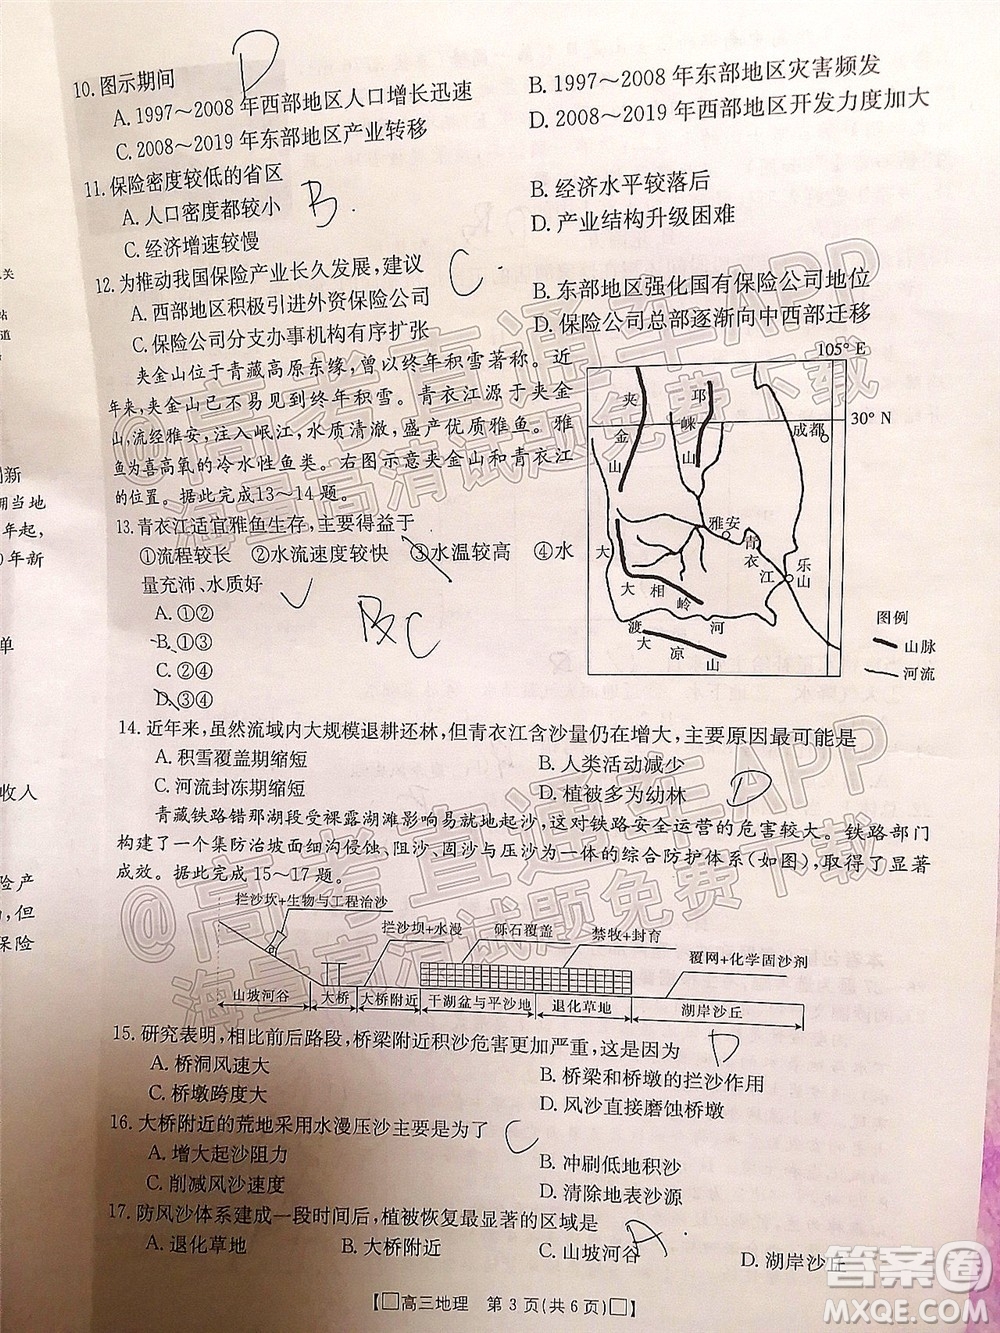 10. 图示期间
D
A. 1997～2008 年西部地区人口增长迅速
B. 1997～2008 年东部地区灾害频发
C. 2008～2019 年东部地区产业转移
D. 2008～2019 年西部地区开发力度加大
11. 保险密度较低的省区
B.
A. 人口密度都较小
B. 经济水平较落后
C. 经济增速较慢
D. 产业结构升级困难
12. 为推动我国保险产业长久发展，建议
C.
A. 西部地区积极引进外资保险公司
B. 东部地区强化国有保险公司地位
C. 保险公司分支办事机构有序扩张
D. 保险公司总部逐渐向中西部迁移
夹金山位于青藏高原东缘，以终年积雪著称。近
年来，夹金山已很少见到终年积雪。青衣江源于夹金
山，流经雅安，注入岷江，水质清澈，盛产优质雅鱼。雅
鱼为喜高氧的冷水性鱼类。右图示意夹金山和青衣江
的位置。据此完成13～14题。
105° E
30° N
夹金山
邛崃山
成都
雅安
青衣江
乐山
大相岭
大渡河
大凉山
图例
山脉
河流
13. 青衣江适宜雅鱼生存，主要得益于
①流程较长 ②水流速度较快 ③水温较高 ④水
量充沛、水质好
A. ①②
B. ①③
C. ②④
D. ③④
C
14. 近年来，虽然流域内大规模退耕还林，但青衣江含沙量仍在增大，主要原因最可能是
A. 积雪覆盖期缩短
B. 人类活动减少
C. 河流封冻期缩短
D. 植被多为幼林
D
青藏铁路错那湖段受裸露湖滩影响易就地起沙，这对铁路安全运营的危害较大。铁路部门
构建了一个集防治坡面细沟侵蚀、阻沙、固沙与压沙为一体的综合防护体系（如图），取得了显著
成效。据此完成15～17题。
拦沙坎+生物与工程治沙
拦沙坝+水漫
砾石覆盖
禁牧+封育
覆网+化学固沙剂
山坡河谷
大桥
大桥附近
干湖盆与平沙地
退化草地
湖岸沙丘
15. 研究表明，相比前后路段，桥梁附近积沙危害更加严重，这是因为
D
A. 桥洞风速大
B. 桥梁和桥墩的拦沙作用
C. 桥墩跨度大
D. 风沙直接磨蚀桥墩
16. 大桥附近的荒地采用水漫压沙主要是为了
C
A. 增大起沙阻力
B. 冲刷低地积沙
C. 削减风沙速度
D. 清除地表沙源
17. 防风沙体系建成一段时间后，植被恢复最显著的区域是
A
A. 退化草地
B. 大桥附近
C. 山坡河谷
D. 湖岸沙丘
【□高三地理 第 3 页(共 6 页)□】
@高考直通车APP
海量高清试题免费下载
@高考直通车APP
海量高清试题免费下载
答案圈
MXQE.COM